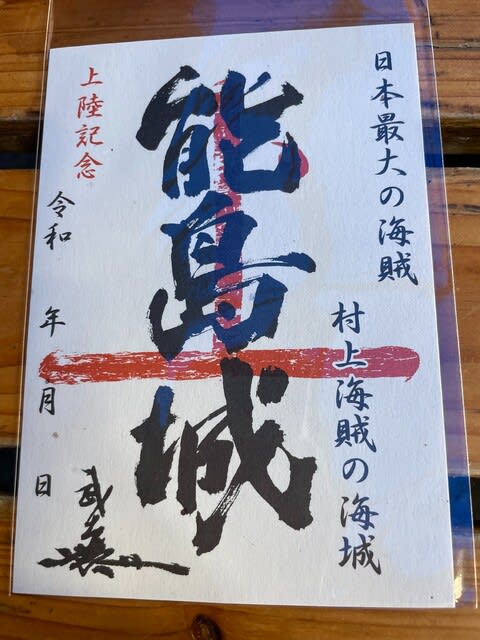 日本最大の海賊
村上海賊の海城
能島城
上陸記念
令和 年 月 日